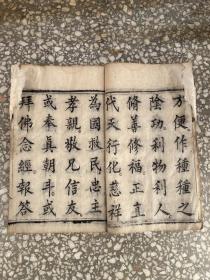 方便作種種之
陰功利物利人
脩善脩福正直
代天行化慈祥
為國救民忠主
孝親敬兄信友
或奉真朝斗或
拜佛念經報答